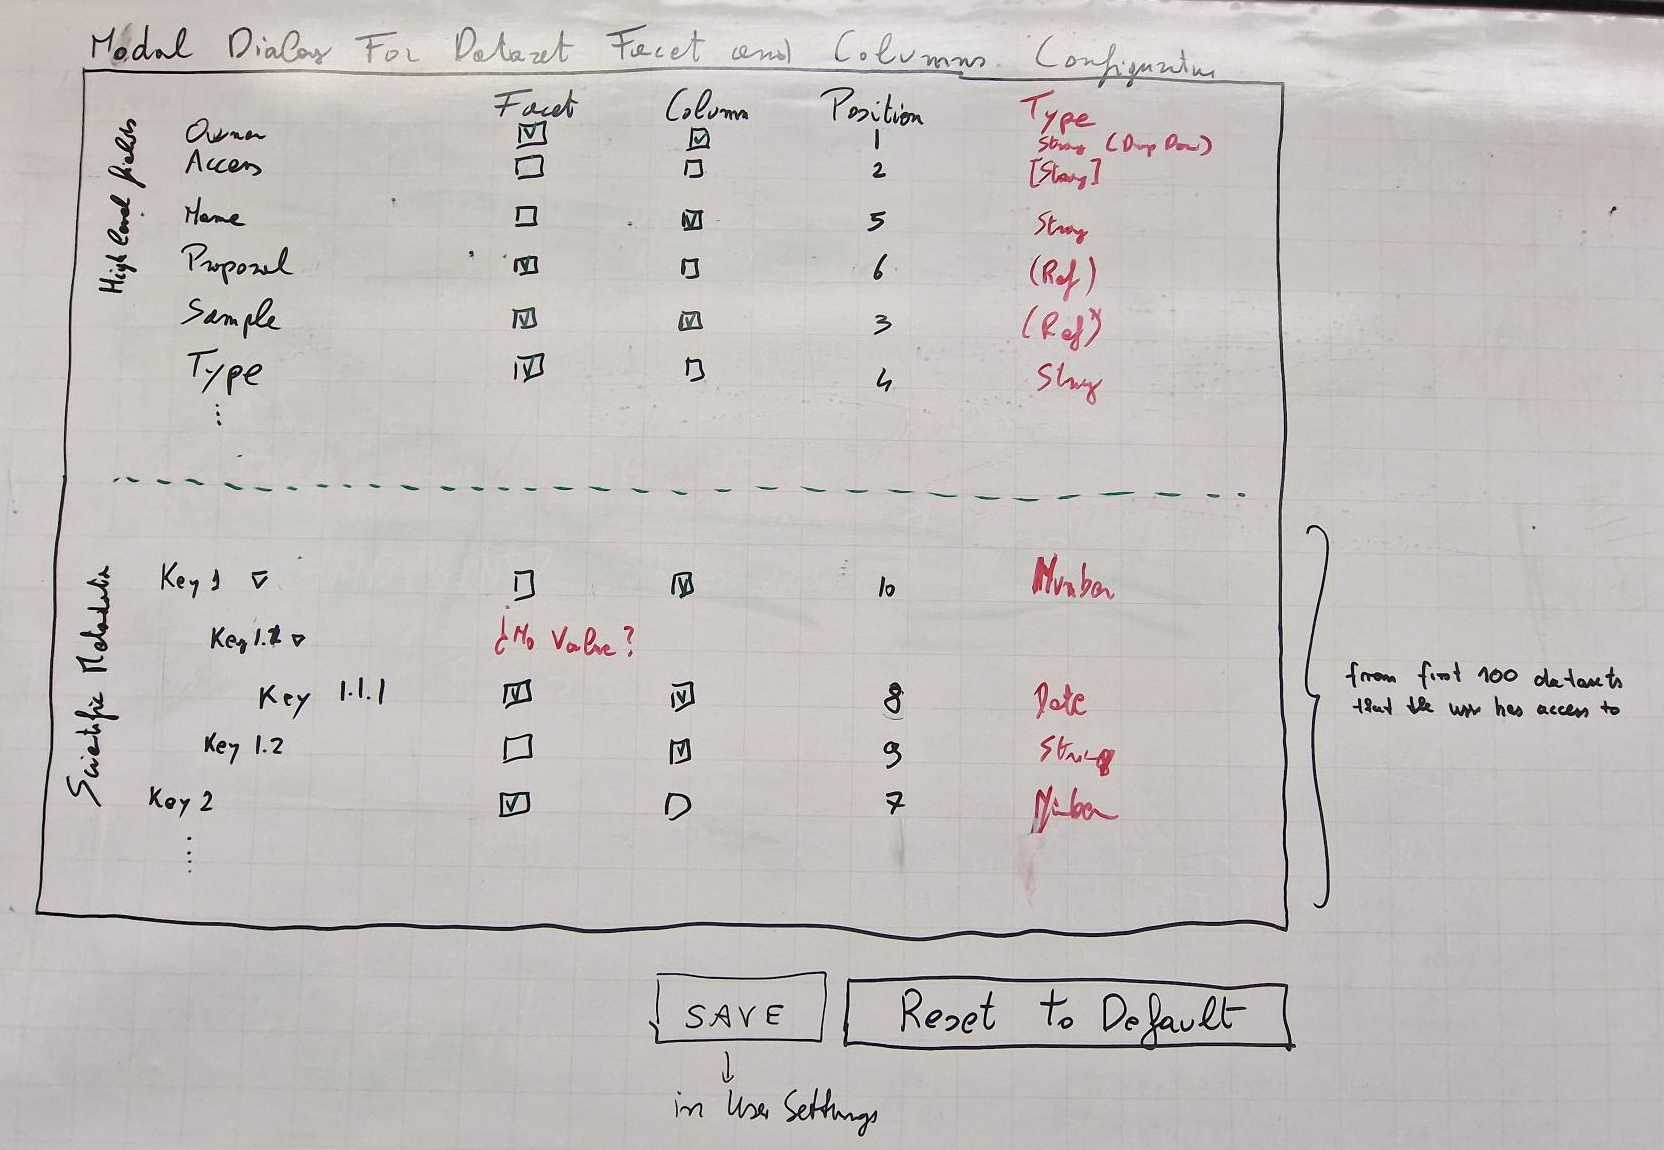 Modal Dialog For Dataset Facet and Columns Configuration
Facet Column Position Type
High level fields
Owner 1 String (Drop Down)
Access 2 [String]
Name 5 String
Proposal 6 (Ref)
Sample 3 (Ref)
Type 4 String
Scientific Metadata
Key 1 10 Number
Key 1.1 ¿No Value?
Key 1.1.1 8 Date
Key 1.2 9 String
Key 2 7 Number
from first 100 datasets
that the user has access to
SAVE Reset to Default
in User Settings